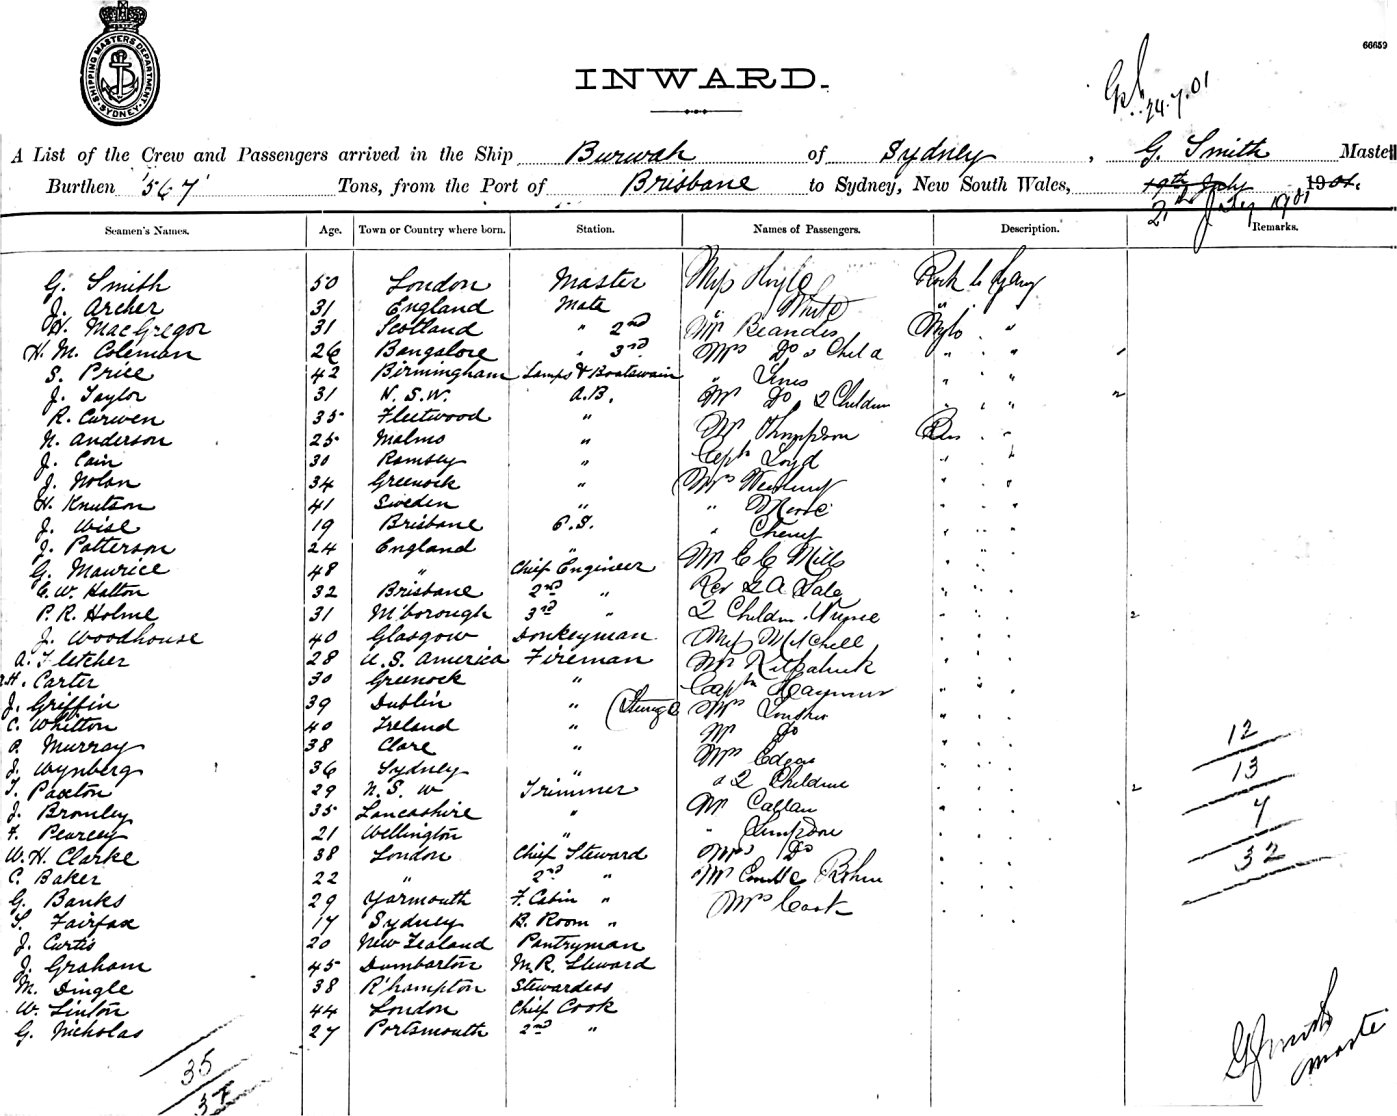 SHIPPING MASTERS DEPARTMENT SYDNEY
66659
INWARD.
24.7.01
A List of the Crew and Passengers arrived in the Ship Burwah of Sydney, G. Smith Master
Burthen 567 Tons, from the Port of Brisbane to Sydney, New South Wales, 19th July 1901.
21st July 1901
Seamen's Names. Age. Town or Country where born. Station. Names of Passengers. Description. Remarks.
G. Smith 50 London Master Miss Hoyle Rock to Syney
J. Archer 31 England Mate " White "
H. MacGregor 31 Scotland " 2nd Mr Beandes "
H. M. Coleman 26 Bangalore " 3rd Mrs Do & Child " " "
S. Price 42 Birmingham Lamps & Boatswain " " " "
J. Taylor 31 N.S.W. A.B. Mrs Do 2 Children " " " 2
R. Curwen 35 Fleetwood "
N. Anderson 25 Malmo " Mr Thompson
J. Cain 30 Ramsey " Captn Loyd
J. Nolan 34 Greenock " Mrs
H. Knutson 41 Sweden " "
J. Wise 19 Brisbane O.S. " Cherry
J. Patterson 24 England "
G. Maurice 48 " Chief Engineer Mr C C Mills
E. W. Hatton 32 Brisbane 2nd " Rev G A Sale
P. R. Holme 31 M'borough 3rd " 2 Children Nurse 2
J. Woodhouse 40 Glasgow Donkeyman Miss Mitchell
A. Fletcher 28 U.S. America Fireman Mr Kilpatrick
H. Carter 30 Greenock " Captn
J. Griffin 39 Dublin " Mrs
C. Whitton 40 Ireland " Mr Do
P. Murray 38 Clare " Mrs Edgar
J. Wynberg 36 Sydney " & 2 Children
T. Paxton 29 N.S.W Trimmer 2
J. Bromley 35 Lancashire " Mr Callan
F. Pearcey 21 Wellington " " Simpson
W. H. Clarke 38 London Chief Steward Mrs Do
C. Baker 22 " 2nd " Mr
G. Banks 29 Yarmouth F. Cabin " Mrs Cook
S. Fairfax 17 Sydney B. Room "
J. Curtis 20 New Zealand Pantryman
J. Graham 45 Dumbarton M.R. Steward
M. Dingle 38 R'hampton Stewardess
W. Linton 44 London Chief Cook
G. Nicholas 27 Portsmouth 2nd "
12
13
7
32
35
37
G Smith
Master